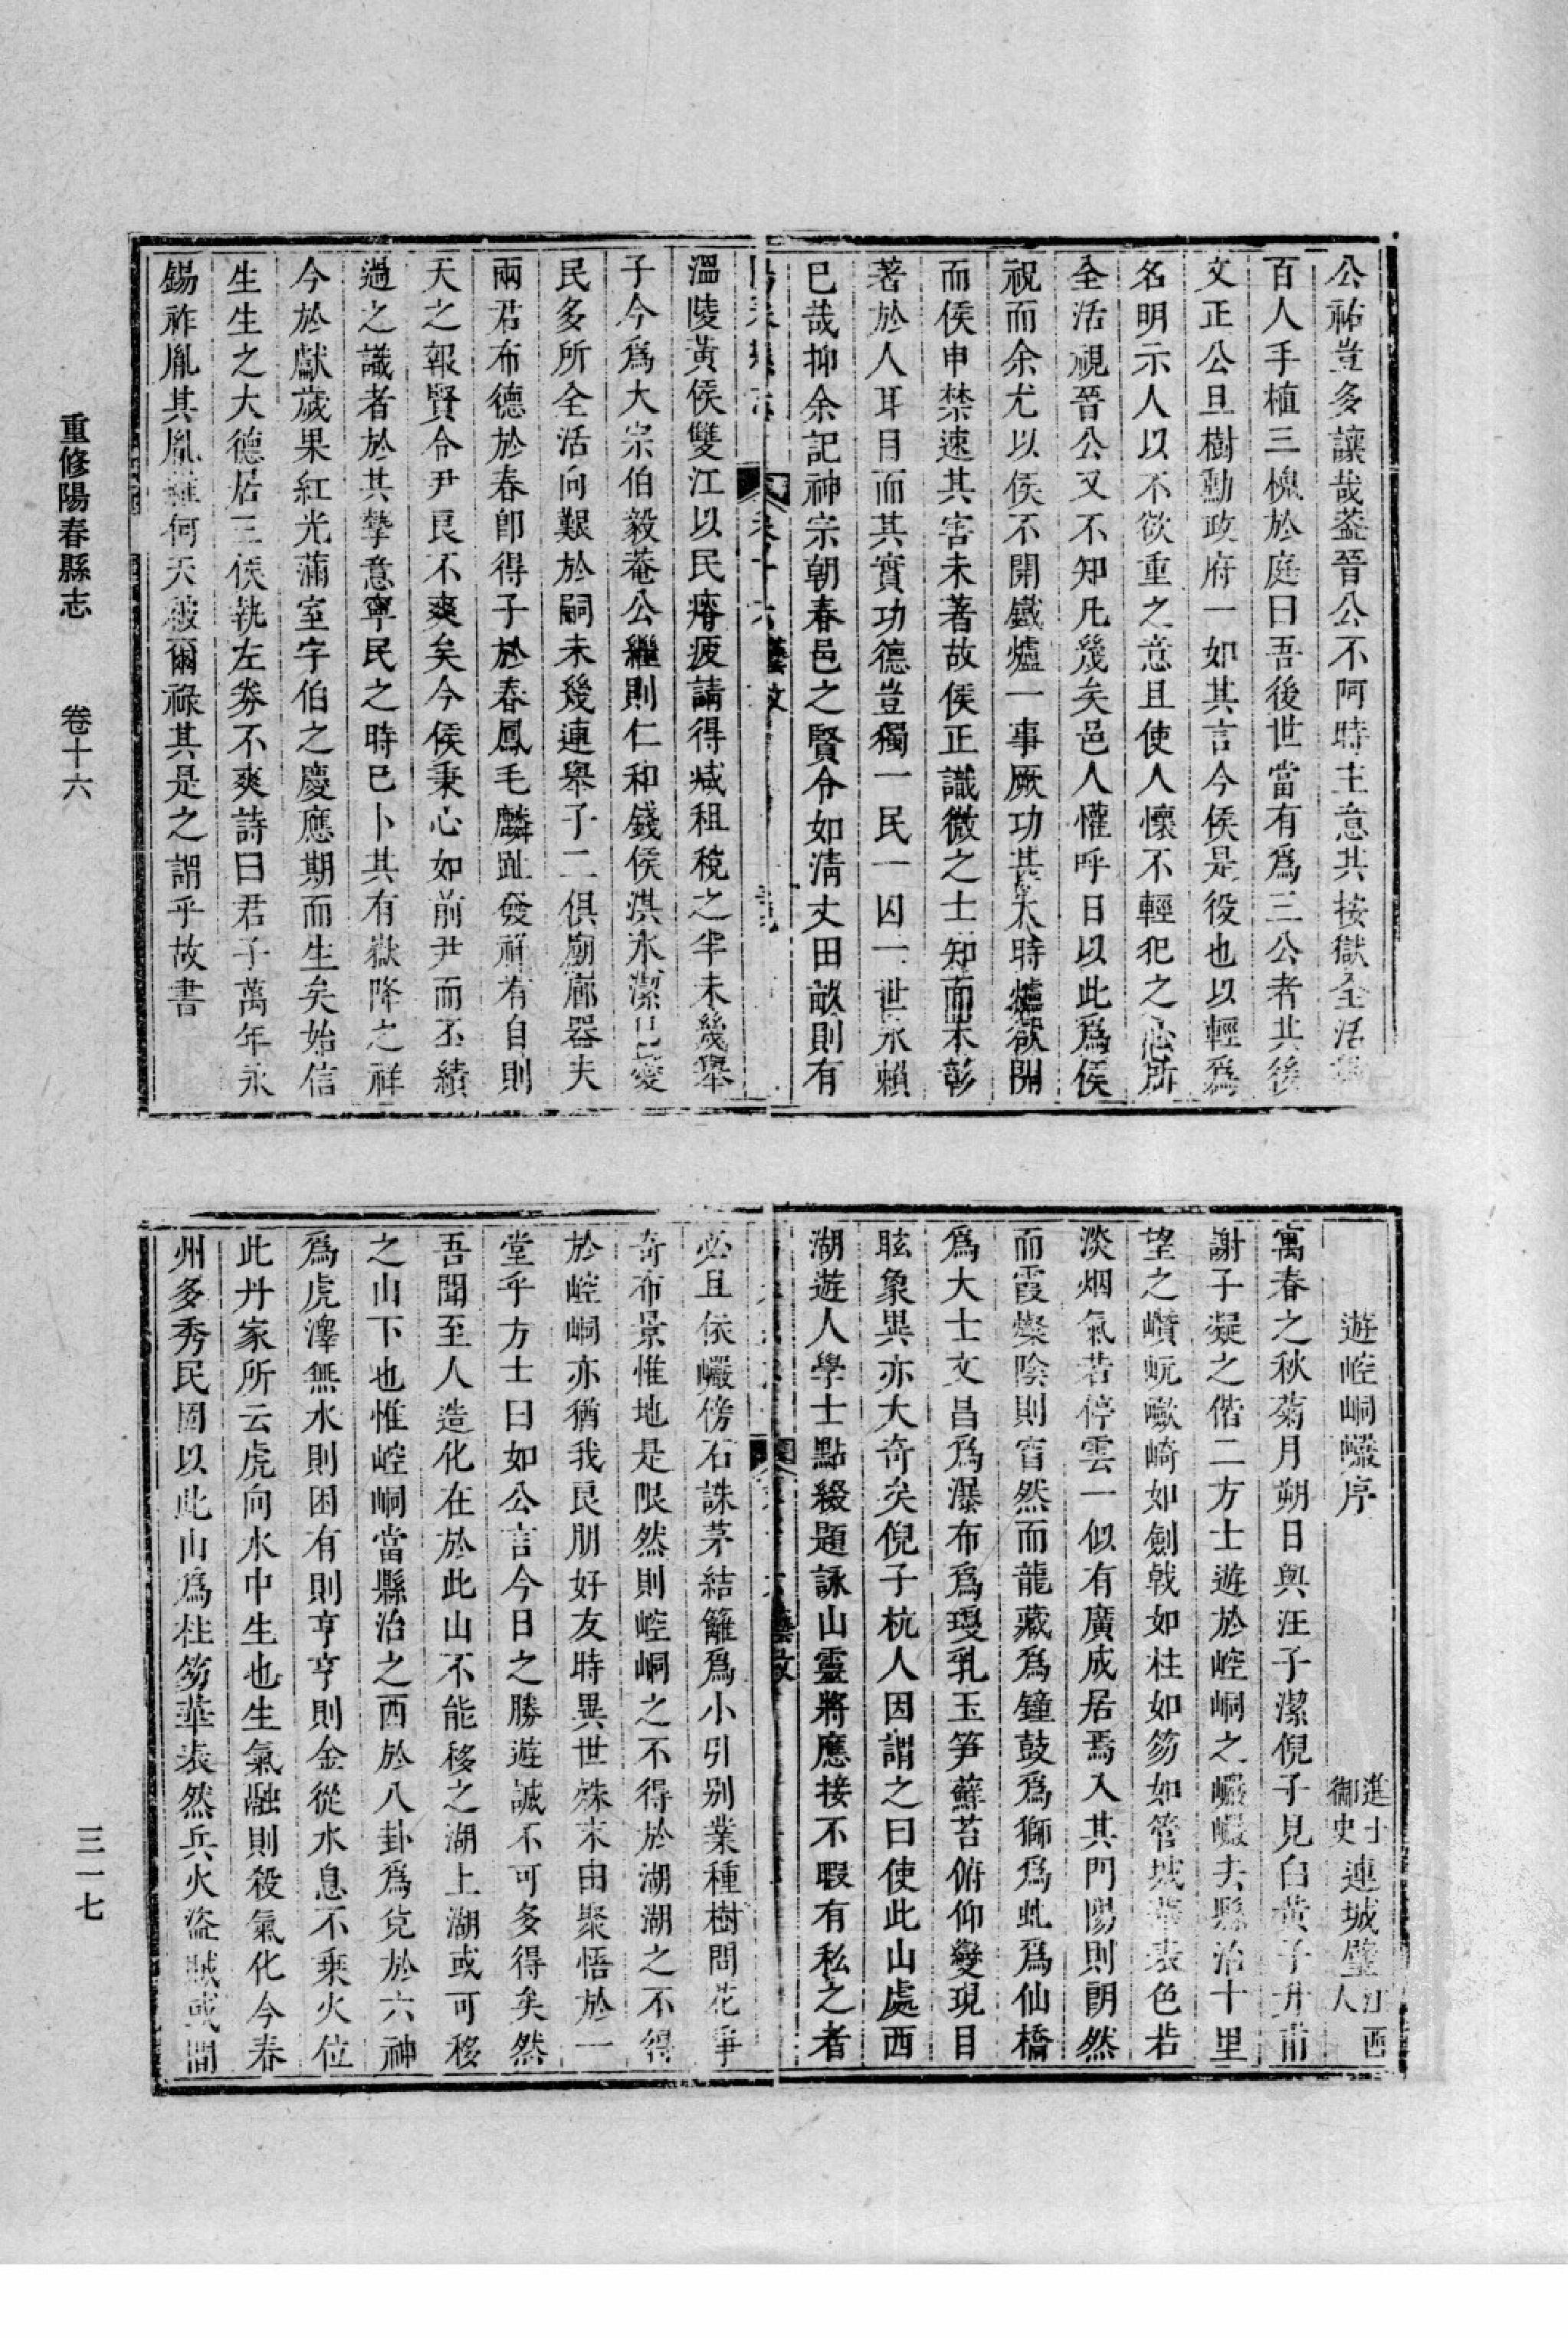 公祐豈多讓哉葢晉公不阿時主意共按獄全活
百人手植三槐於庭曰吾後世當有爲三公者其後
文正公旦樹勳政府一如其言今侯是役也以輕爲
名明示人以不欲重之意且使人懷不輕犯之心所
全活視晉公又不知凡幾矣邑人懽呼日以此爲侯
祝而余尤以侯不開鐵爐一事厥功甚大時爐欲開
而侯申禁速其害未著故侯正識微之士知而不彰
著於人耳目而其實功德豈獨一民一囚一世永賴
已哉抑余記神宗朝春邑之賢令如淸丈田畝則有
溫陵黃侯雙江以民瘠疲請得减租稅之半未幾舉
子今爲大宗伯毅菴公繼則仁和錢侯淇氷潔己愛
民多所全活向艱於嗣未幾連舉子二俱廟廊器夫
兩君布德於春卽得子於春鳳毛麟趾發祥有自則
天之報賢令尹良不爽矣今侯秉心如前尹而丕績
過之識者於其摯意寧民之時已卜其有嶽降之祥
今於獻歲果紅光滿室字伯之慶應期而生矣始信
生生之大德居三侯執左劵不爽詩曰君子萬年永
錫祚胤其胤維何天被爾祿其是之謂乎故書
遊崆峒巖序 進士御史連城璧江西人
寓春之秋菊月朔日與汪子潔倪子見白黃子升甫
謝子凝之偕二方士遊於崆峒之巖巖去縣治十里
望之巑岏嶔崎如劍戟如柱如笏如管城華表色若
淡烟氣若停雲一似有廣成居焉入其門陽則朗然
而霞燦陰則窅然而龍藏爲鐘鼓爲獅爲虬爲仙橋
爲大士文昌爲瀑布爲瓊乳玉笋蘚苔俯仰變現目
眩象異亦大奇矣倪子杭人因謂之曰使此山處西
湖遊人學士點綴題詠山靈將應接不暇有私之者
必且依巖傍石誅茅結籬爲小引别業種樹問花爭
奇布景惟地是限然則崆峒之不得於湖湖之不得
於崆峒亦猶我良朋好友時異世殊末由聚悟於一
堂乎方士曰如公言今日之勝遊誠不可多得矣然
吾聞至人造化在於此山不能移之湖上湖或可移
之山下也惟崆峒當縣治之西於八卦爲兌於六神
爲虎澤無水則困有則亨亨則金從水息不乘火位
此丹家所云虎向水中生也生氣融則殺氣化今春
州多秀民固以此山爲柱笏華表然兵火盗賊或間
重修陽春縣志 卷十六
三一七